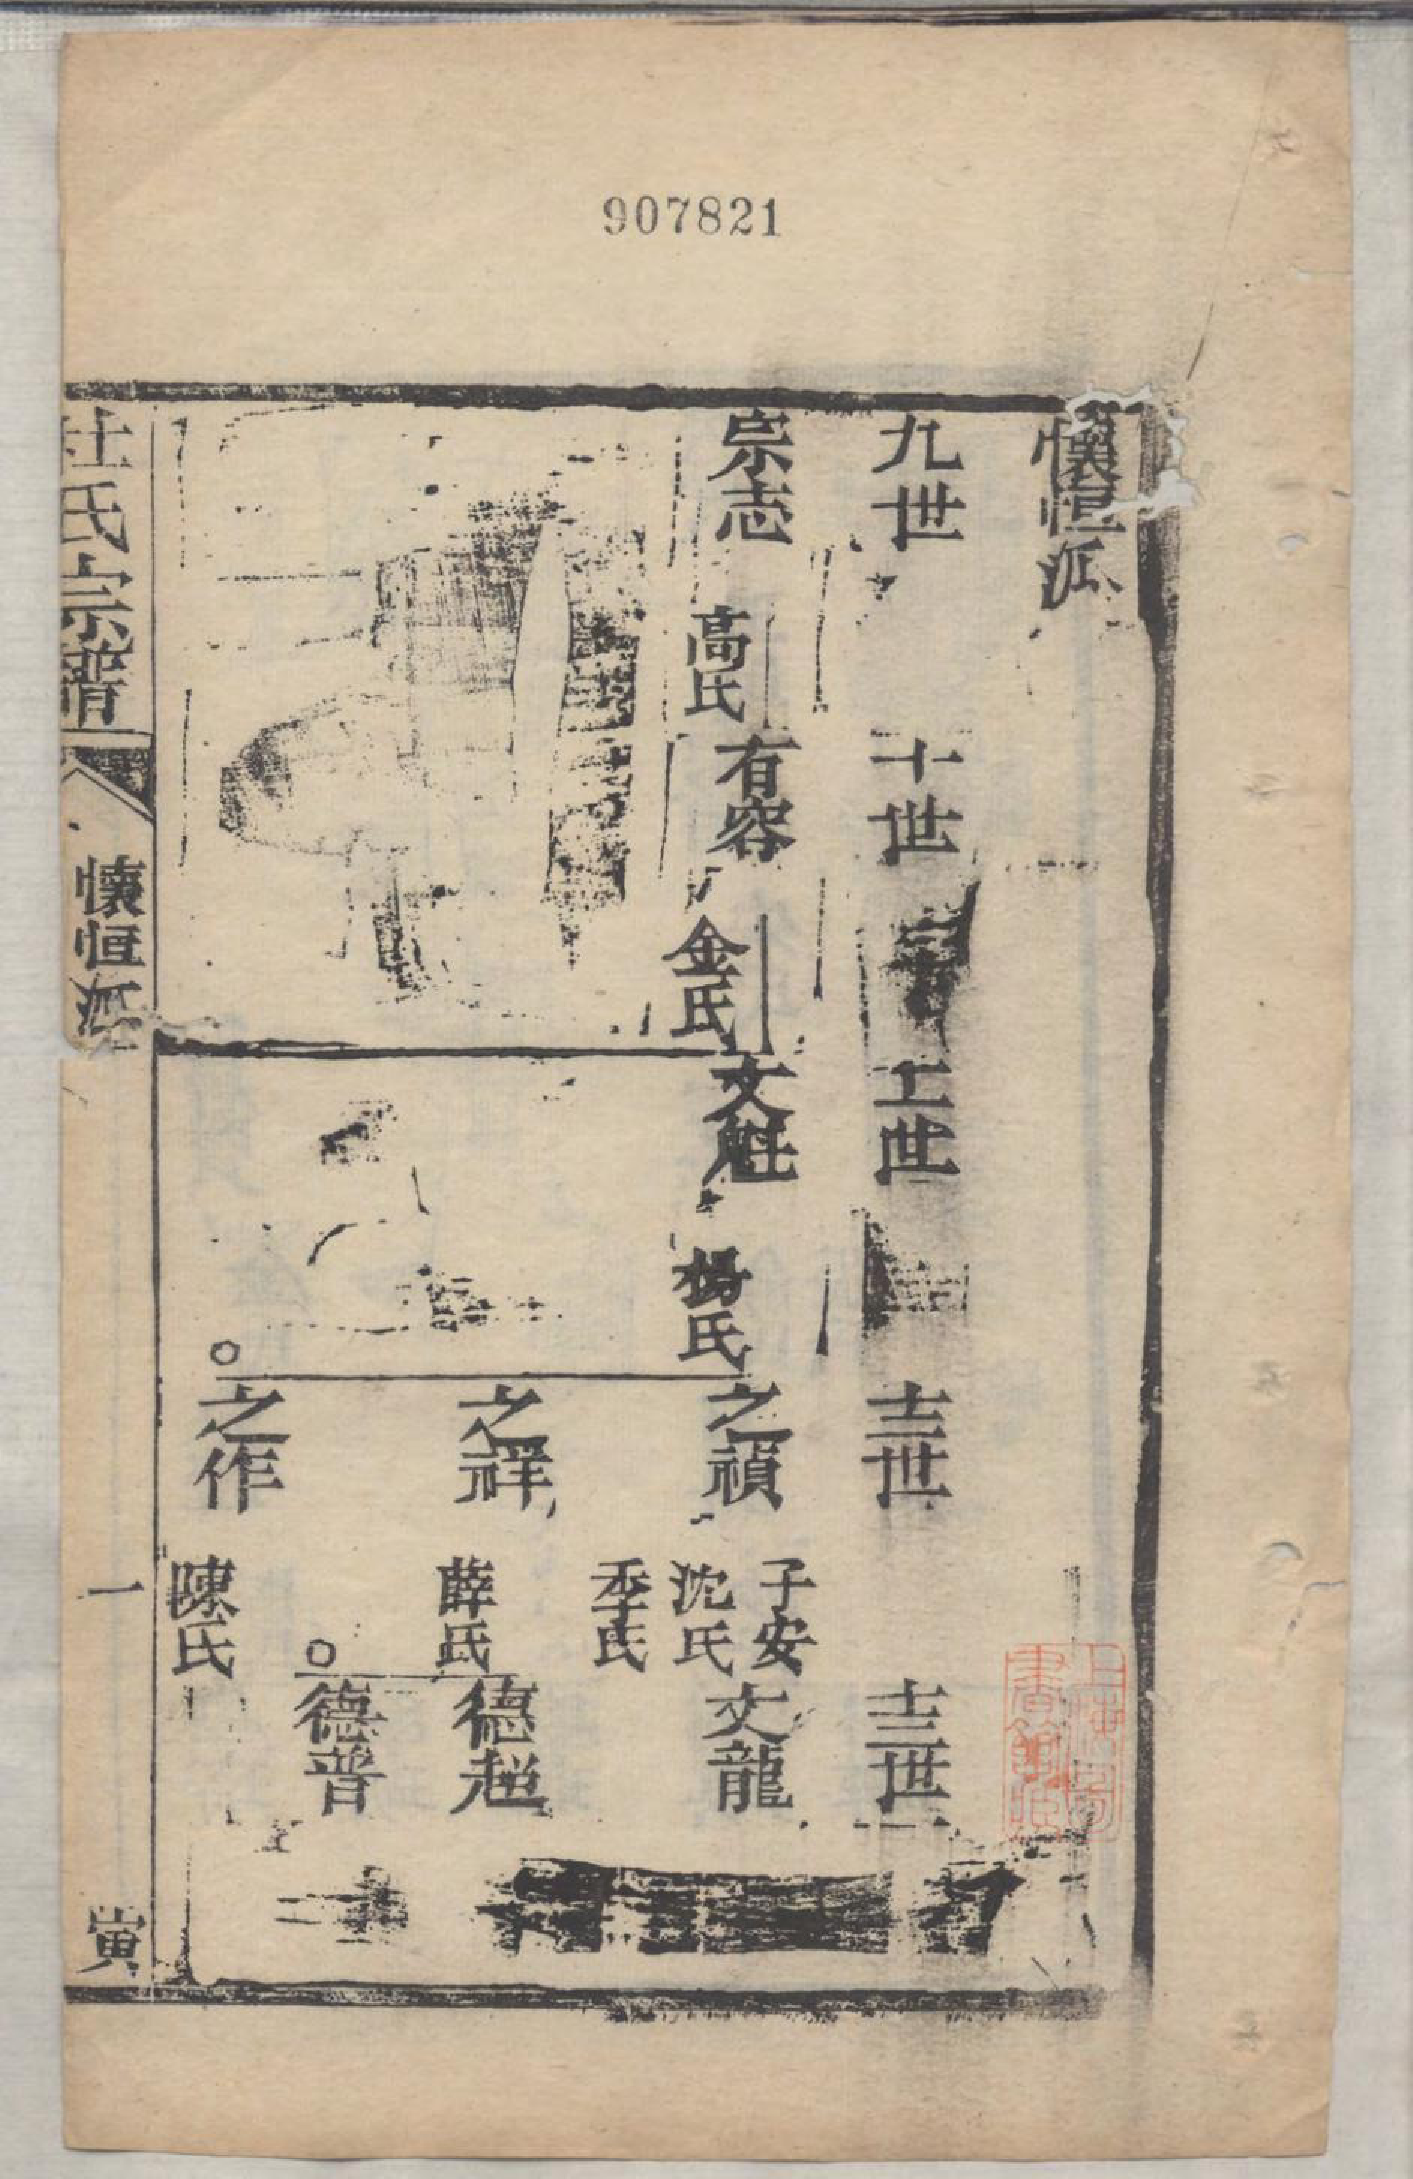 907821
懷恒派
九世 十世 十一世 十二世 十三世
宗志 高氏 有容 金氏 文魁 楊氏 之禎 子安 沈氏 季氏 文龍
之祥 薛氏 德超
德普
之作 陳氏
杜氏宗譜 懷恒派 一 寅